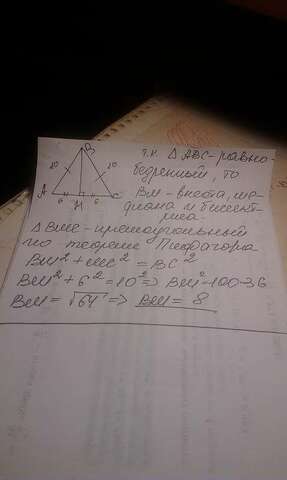 B
10 10
A 6 M 6 C
т.к. △ABC-равно-
бедренный, то
BM-высота, ме-
диана и биссект-
риса.
△BMC-прямоугольный
по теореме Пифагора
BM²+MC²=BC²
BM²+6²=10²⇒BM²=100-36
BM=√64⇒BM=8